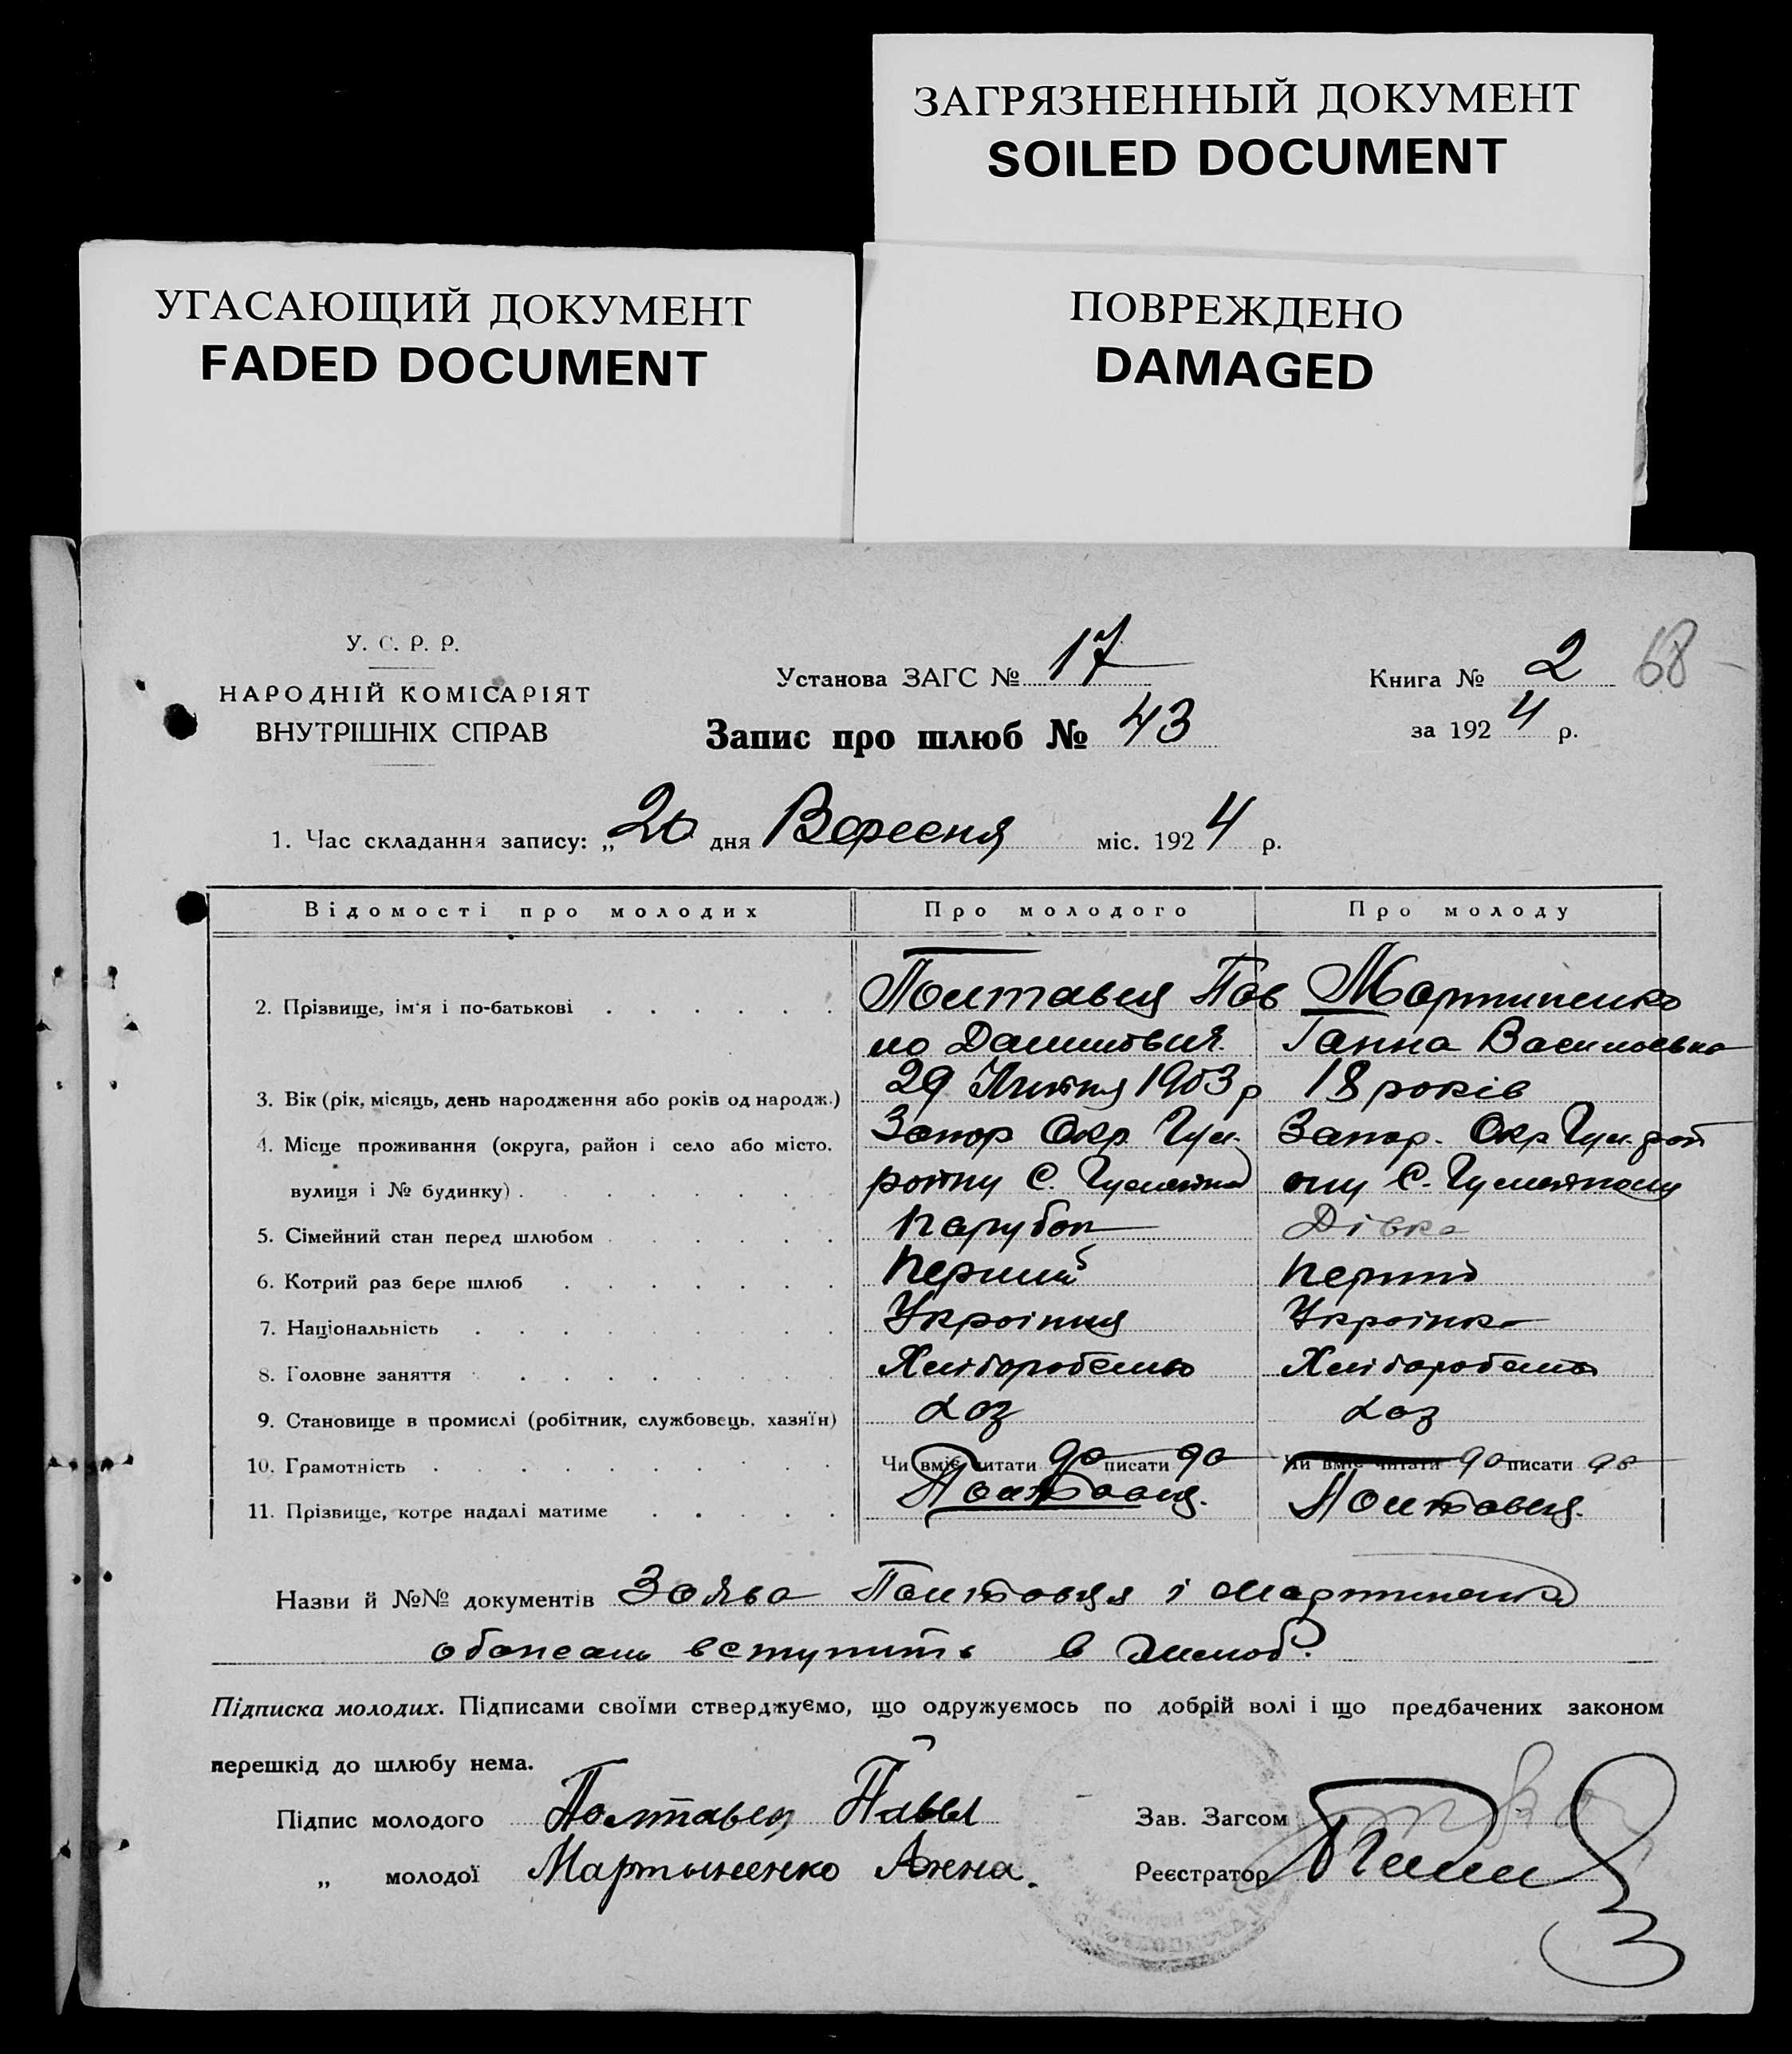 ЗАГРЯЗНЕННЫЙ ДОКУМЕНТ
SOILED DOCUMENT
УГАСАЮЩИЙ ДОКУМЕНТ
FADED DOCUMENT
ПОВРЕЖДЕНО
DAMAGED
У. С. Р. Р.
НАРОДНІЙ КОМІСАРІЯТ
ВНУТРІШНІХ СПРАВ
Установа ЗАГС № 17
Запис про шлюб № 43
Книга № 2 68
за 1924 р.
1. Час складання запису: „20 дня Вересня міс. 1924 р.
Відомості про молодих Про молодого Про молоду
2. Прізвище, ім'я і по-батькові Полтавця Пав Мартиненко
ло Ганна Василовна
3. Вік (рік, місяць, день народження або років од народж.) 29 1903 р 18 років
4. Місце проживання (округа, район і село або місто, Запор Окр. Гул. Запор. Окр Гул. рай
вулиця і № будинку) С. ону С.
5. Сімейний стан перед шлюбом Парубок Дівка
6. Котрий раз бере шлюб Перший Перший
7. Національність Українця Українка
8. Головне заняття Хліборобство Хліборобство
9. Становище в промислі (робітник, службовець, хазяїн) хаз хаз
10. Грамотність Чи вміє читати да писати да Чи вміє читати да писати да
11. Прізвище, котре надалі матиме Полтавця. Полтавця.
Назви й №№ документів Заява Полтавця і Мартиненко
вступить в шлюб.
Підписка молодих. Підписами своїми стверджуємо, що одружуємось по добрій волі і що предбачених законом
перешкід до шлюбу нема.
Підпис молодого Полтавец Павел Зав. Загсом
„ молодої Мартыненко Анна. Реєстратор